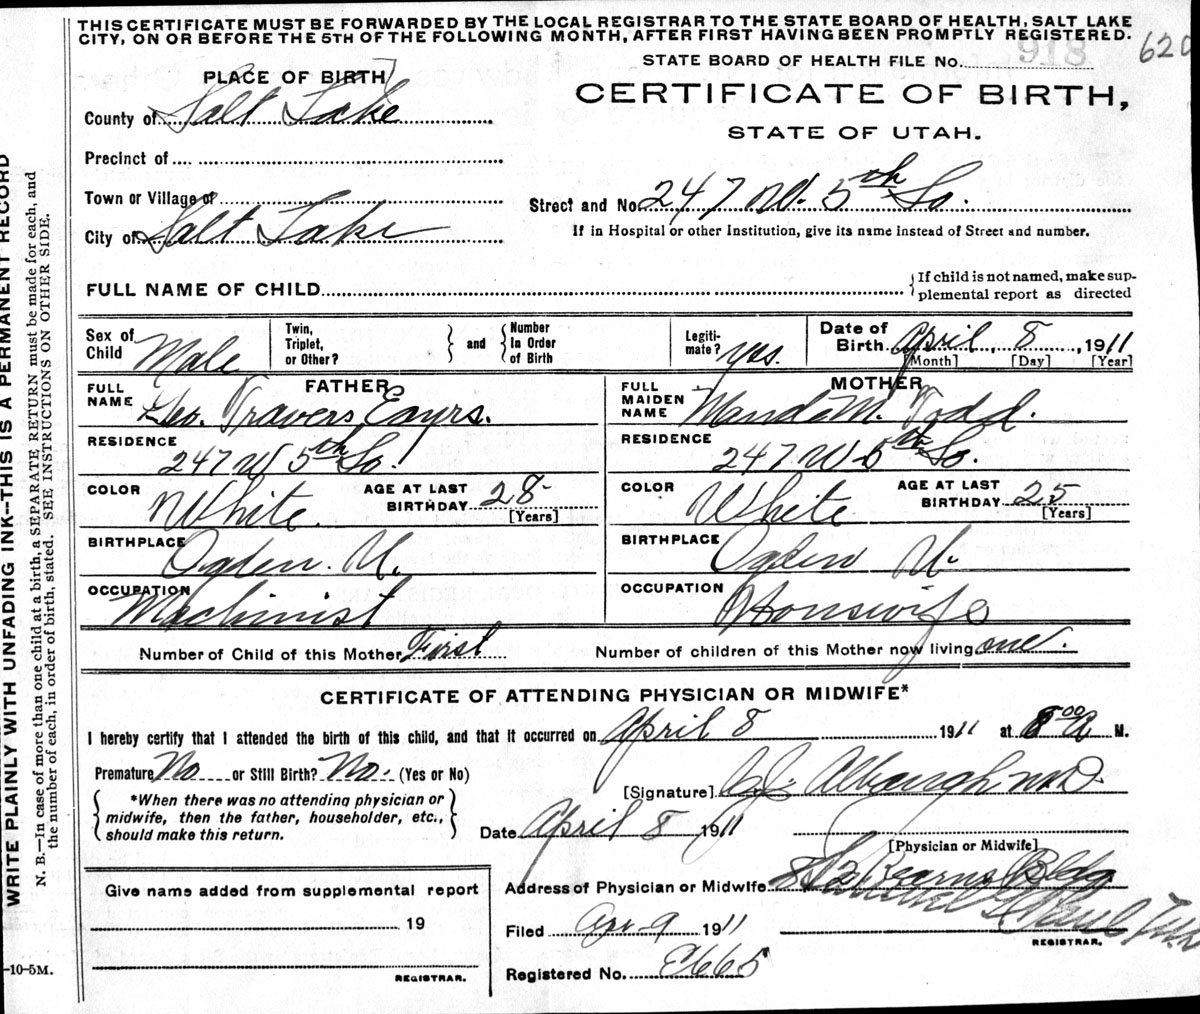 THIS CERTIFICATE MUST BE FORWARDED BY THE LOCAL REGISTRAR TO THE STATE BOARD OF HEALTH, SALT LAKE
CITY, ON OR BEFORE THE 5TH OF THE FOLLOWING MONTH, AFTER FIRST HAVING BEEN PROMPTLY REGISTERED.
STATE BOARD OF HEALTH FILE NO. 918 620
PLACE OF BIRTH
CERTIFICATE OF BIRTH,
STATE OF UTAH.
County of Salt Lake
Precinct of
Town or Village of
City of Salt Lake
Street and No. 247 W. 5th So.
If in Hospital or other Institution, give its name instead of Street and number.
FULL NAME OF CHILD
If child is not named, make sup-
plemental report as directed
Sex of Child Male
Twin, Triplet, or Other? and Number In Order of Birth
Legiti-mate? yes.
Date of Birth April 8, 1911
[Month] [Day] [Year]
FATHER
FULL NAME Geo. Travers Eayrs.
RESIDENCE 247 W 5th So.
COLOR White AGE AT LAST BIRTHDAY 28
[Years]
BIRTHPLACE Ogden. U.
OCCUPATION Machinist
MOTHER
FULL MAIDEN NAME Maude M. Todd.
RESIDENCE 247 W. 5th So.
COLOR White AGE AT LAST BIRTHDAY 25
[Years]
BIRTHPLACE Ogden U.
OCCUPATION Houswife
Number of Child of this Mother First
Number of children of this Mother now living one.
CERTIFICATE OF ATTENDING PHYSICIAN OR MIDWIFE*
I hereby certify that I attended the birth of this child, and that it occurred on April 8 1911 at 8 00 A M.
Premature No or Still Birth? No. (Yes or No)
*When there was no attending physician or
midwife, then the father, householder, etc.,
should make this return.
[Signature] Albaugh M.D.
Date April 8 1911
[Physician or Midwife]
Address of Physician or Midwife Kearns Bldg
Filed Apr 9 1911
REGISTRAR.
Registered No. E665
Give name added from supplemental report
19
REGISTRAR.
WRITE PLAINLY WITH UNFADING INK—THIS IS A PERMANENT RECORD
N. B.—In case of more than one child at a birth, a SEPARATE RETURN must be made for each, and
the number of each, in order of birth, stated. SEE INSTRUCTIONS ON OTHER SIDE.
-10-5M.